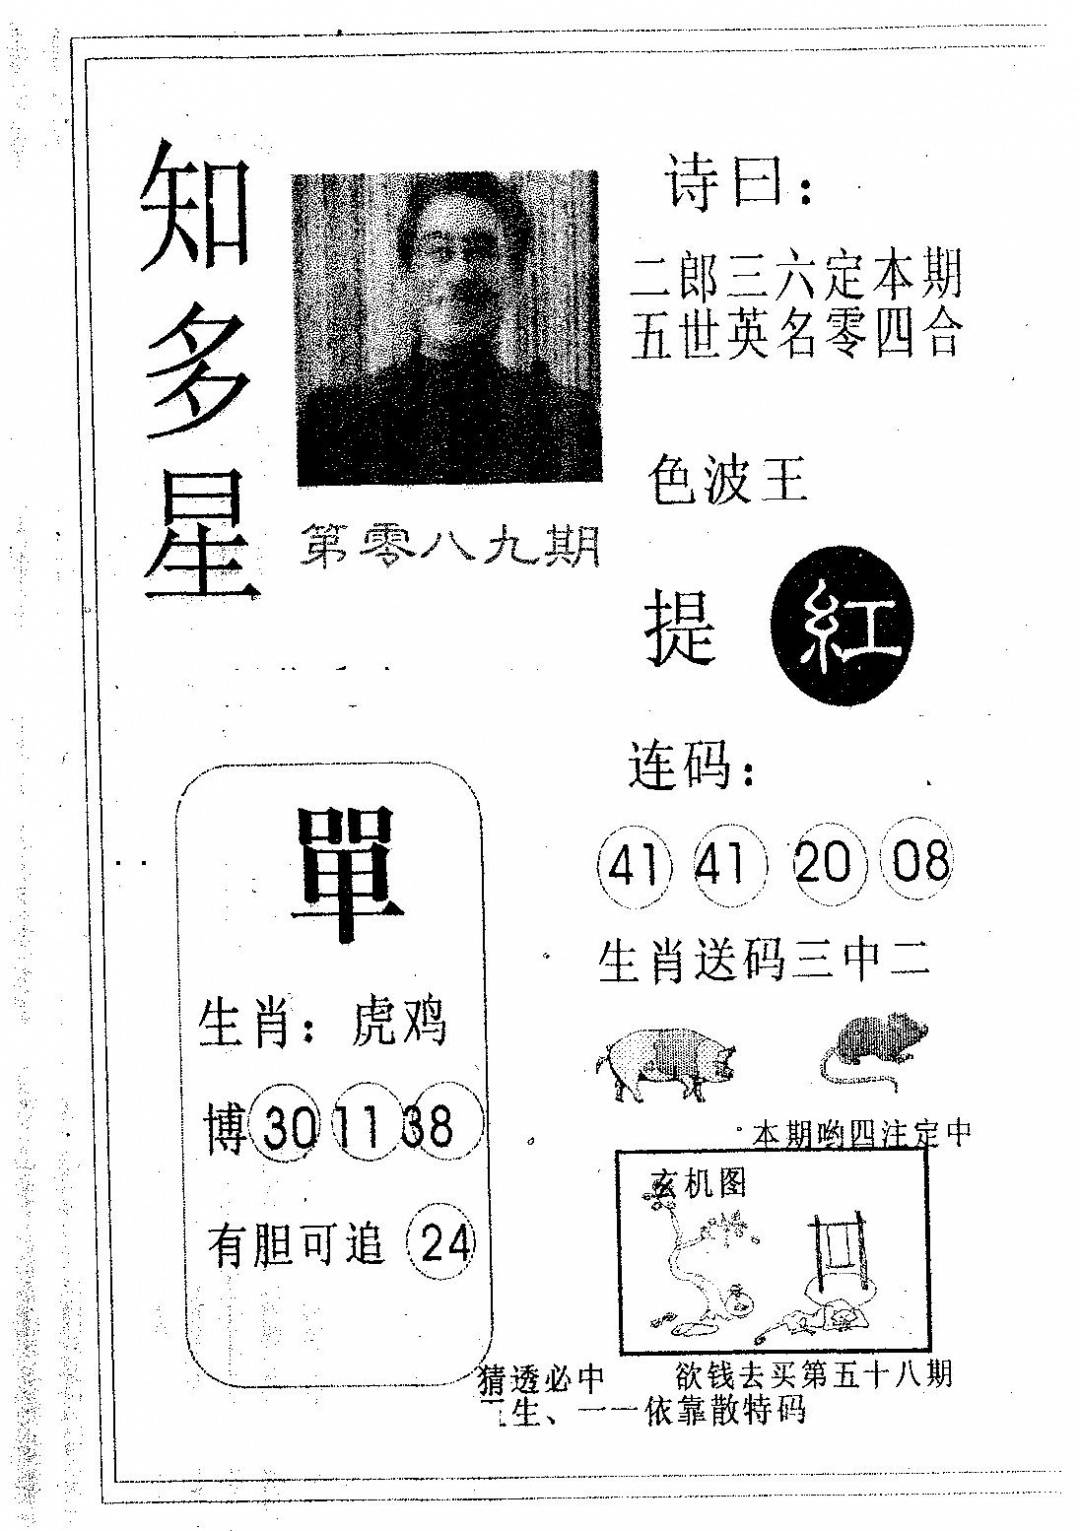 知多星
第零八九期
诗曰：
二郎三六定本期
五世英名零四合
色波王
提 紅
连码：
41 41 20 08
生肖送码三中二
本期哟四注定中
玄机图
單
生肖：虎鸡
博 30 11 38
有胆可追 24
猜透必中 欲钱去买第五十八期
生、一一依靠散特码